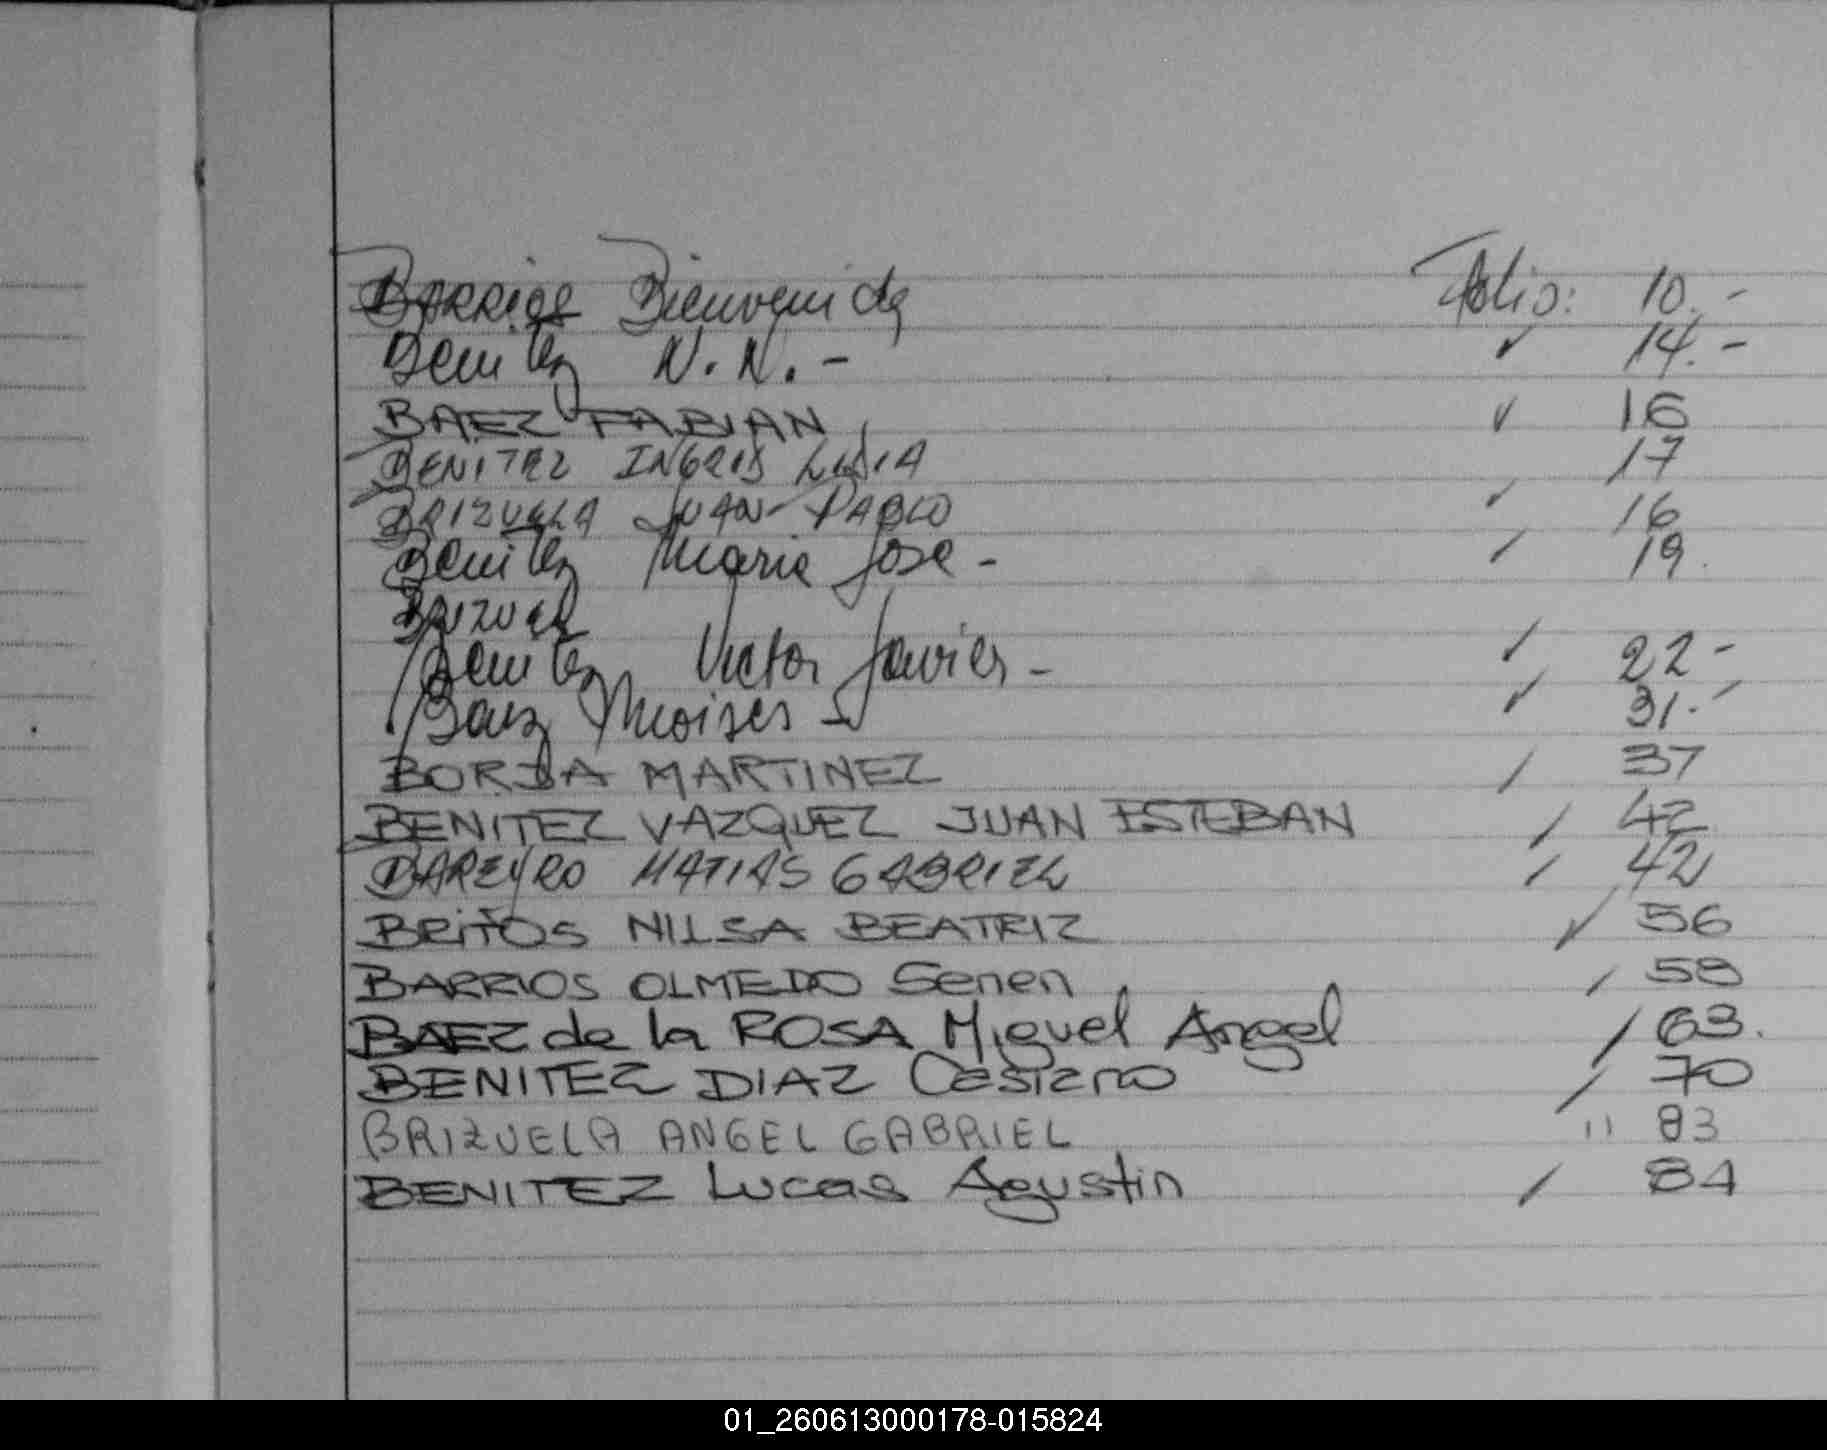 Barrios Bienvenida Folio: 10.-
Benitez N.N.- ✓ 14.-
BAEZ FABIAN ✓ 16
BENITEZ INGRID LUJIA 17
BRIZUELA JUAN PABLO ✓ 16
Benitez Maria Jose - / 19.
BRIZUEL
Benitez Victor Javier - / 22-
Baez Moises - ✓ 31.-
BORJA MARTINEZ / 37
BENITEZ VAZQUEZ JUAN ESTEBAN / 42
BAREYRO MATIAS GABRIEL / 42
BRITOS NILSA BEATRIZ ✓ 56
BARRIOS OLMEDO Senen / 58
BAEZ de la ROSA Miguel Angel / 63.
BENITEZ DIAZ Casiano / 70
BRIZUELA ANGEL GABRIEL " 83
BENITEZ Lucas Agustin / 84
01_260613000178-015824